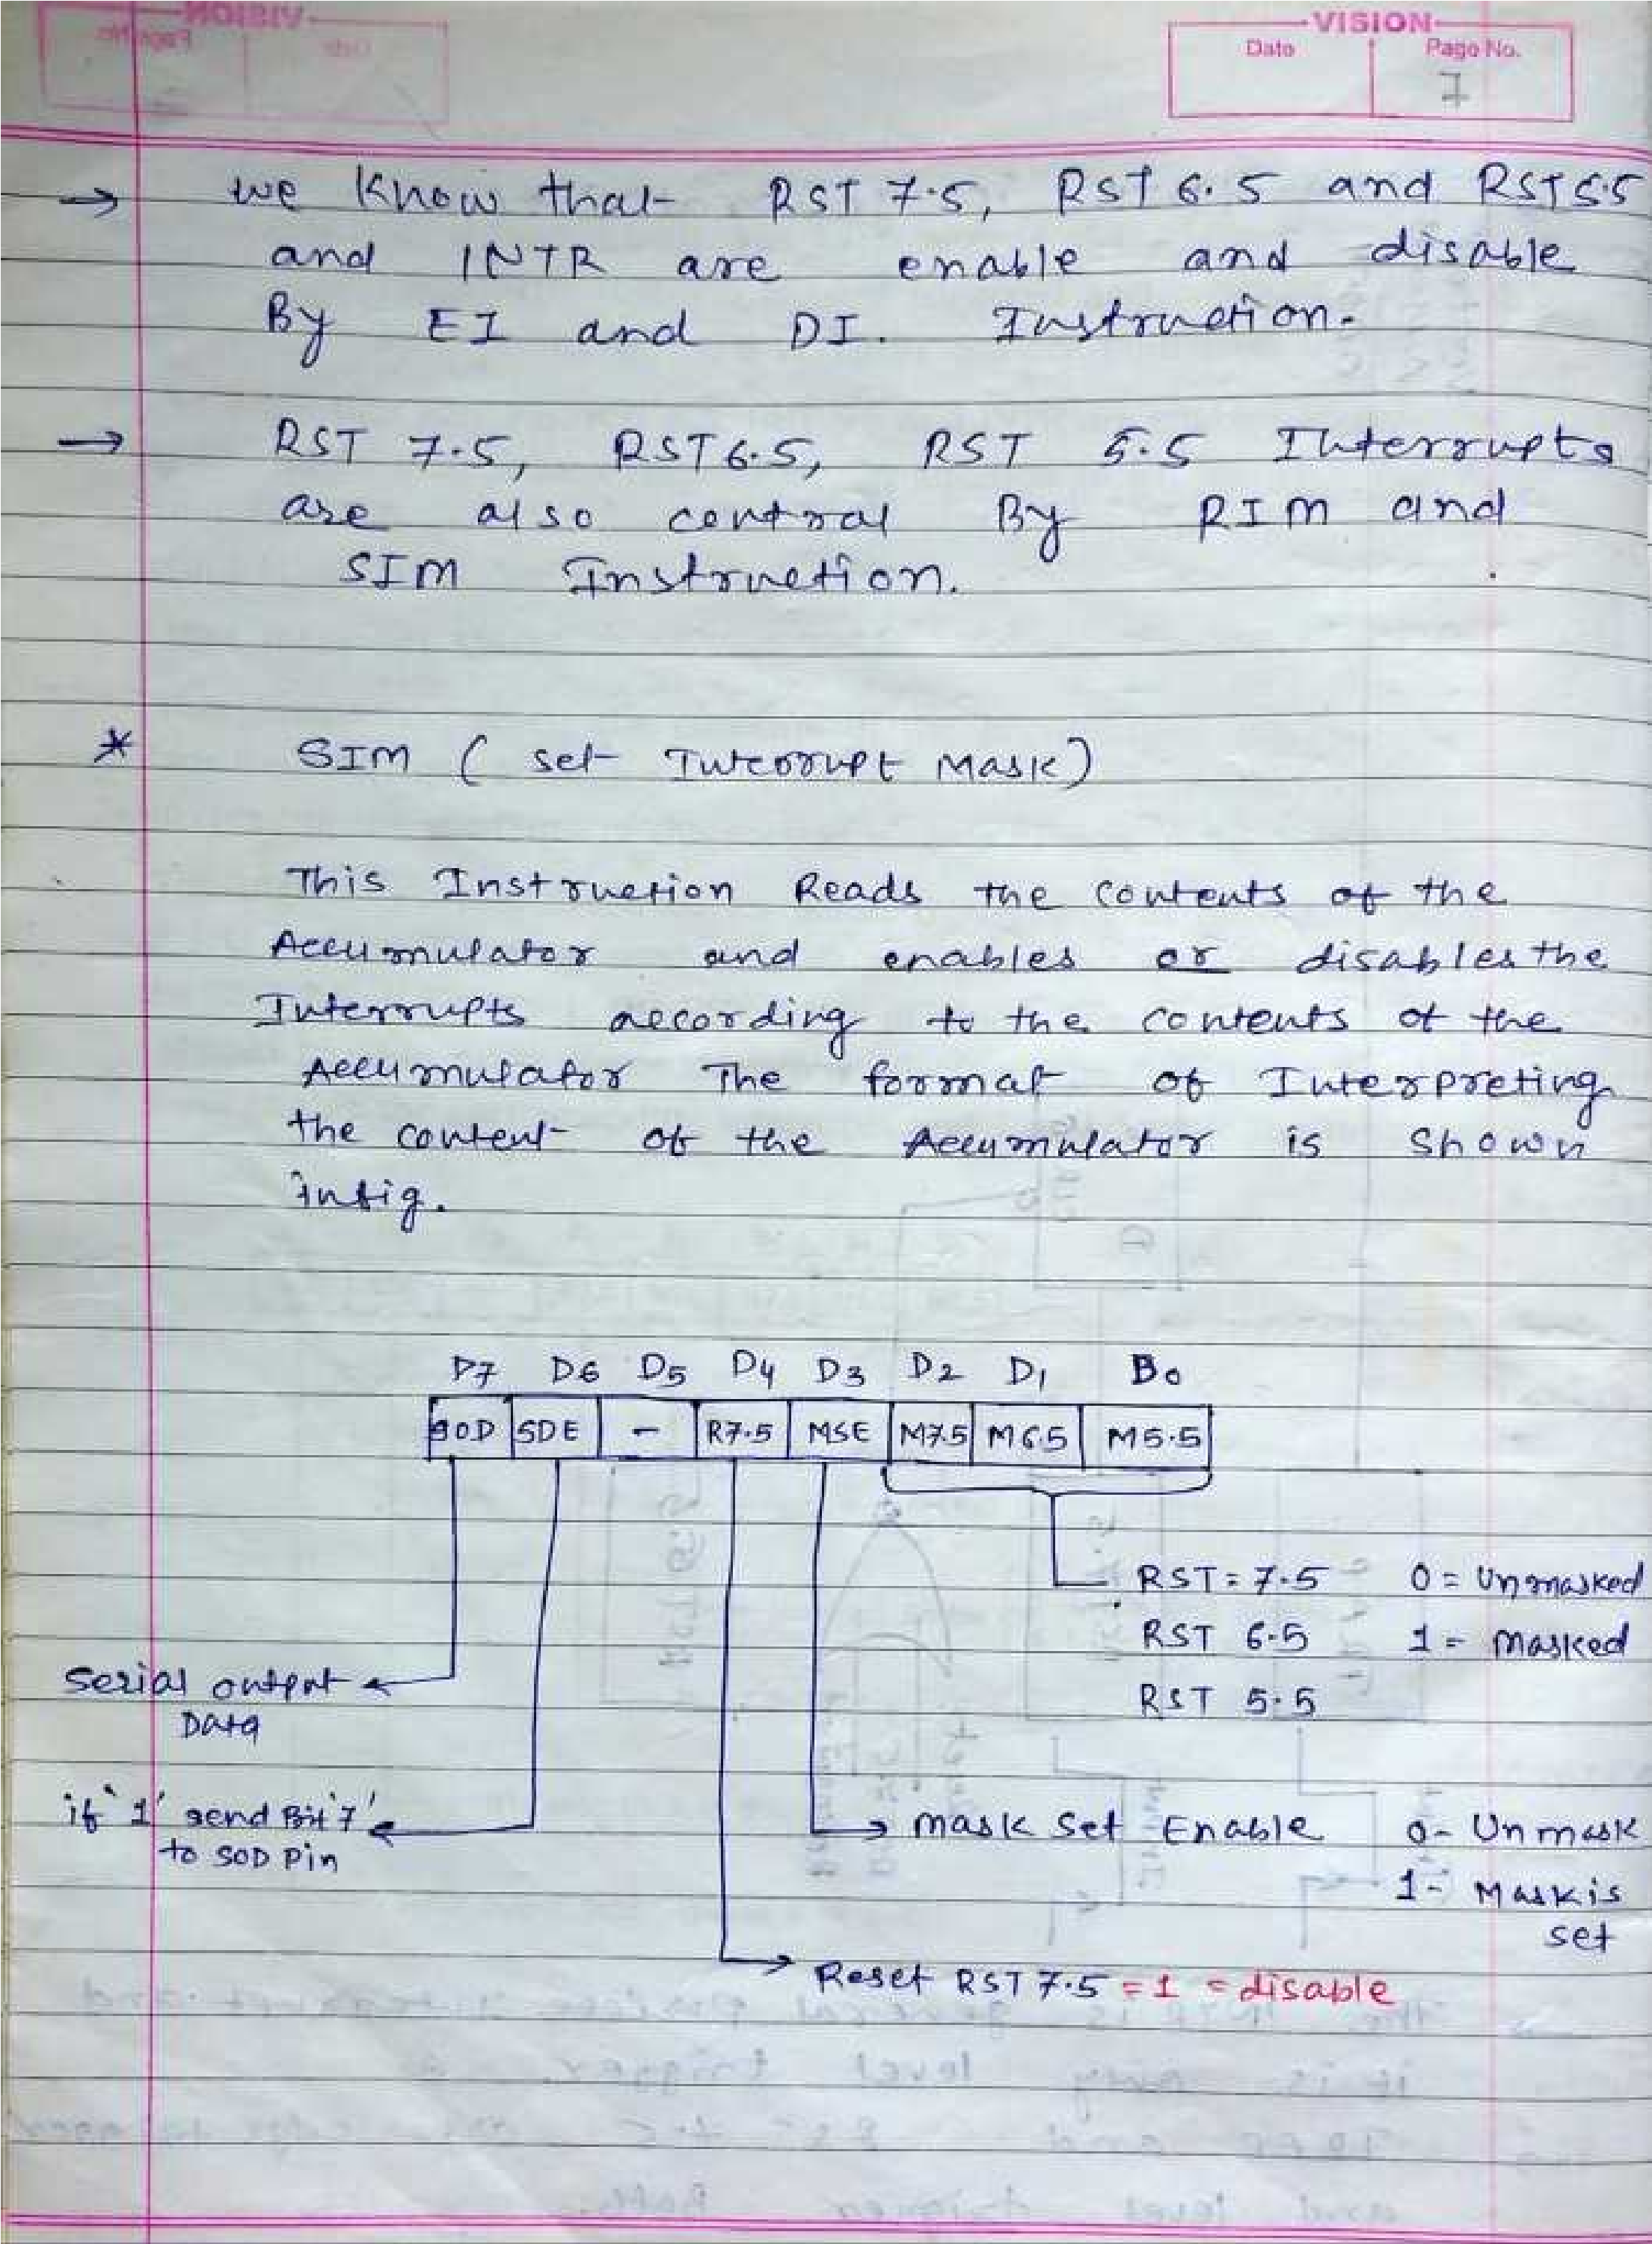 VISION
Date Page No.
7
→ we know that RST 7.5, RST 6.5 and RST 5.5
and INTR are enable and disable
By EI and DI. Instruction.
→ RST 7.5, RST 6.5, RST 5.5 Interrupts
are also control By RIM and
SIM Instruction.
* SIM ( set Interrupt Mask)
This Instruction Reads the contents of the
Accumulator and enables or disables the
Interrupts according to the contents of the
Accumulator The format of Interpreting
the content of the Accumulator is shown
infig.
D7 D6 D5 D4 D3 D2 D1 B0
SOD SDE - R7.5 MSE M7.5 M6.5 M5.5
RST = 7.5 0 = Unmasked
RST 6.5 1 = Masked
RST 5.5
Serial output
Data
if '1' send Bit '7'
to SOD Pin
Mask Set Enable 0- Unmask
1- Mask is
set
Reset RST 7.5 = 1 = disable